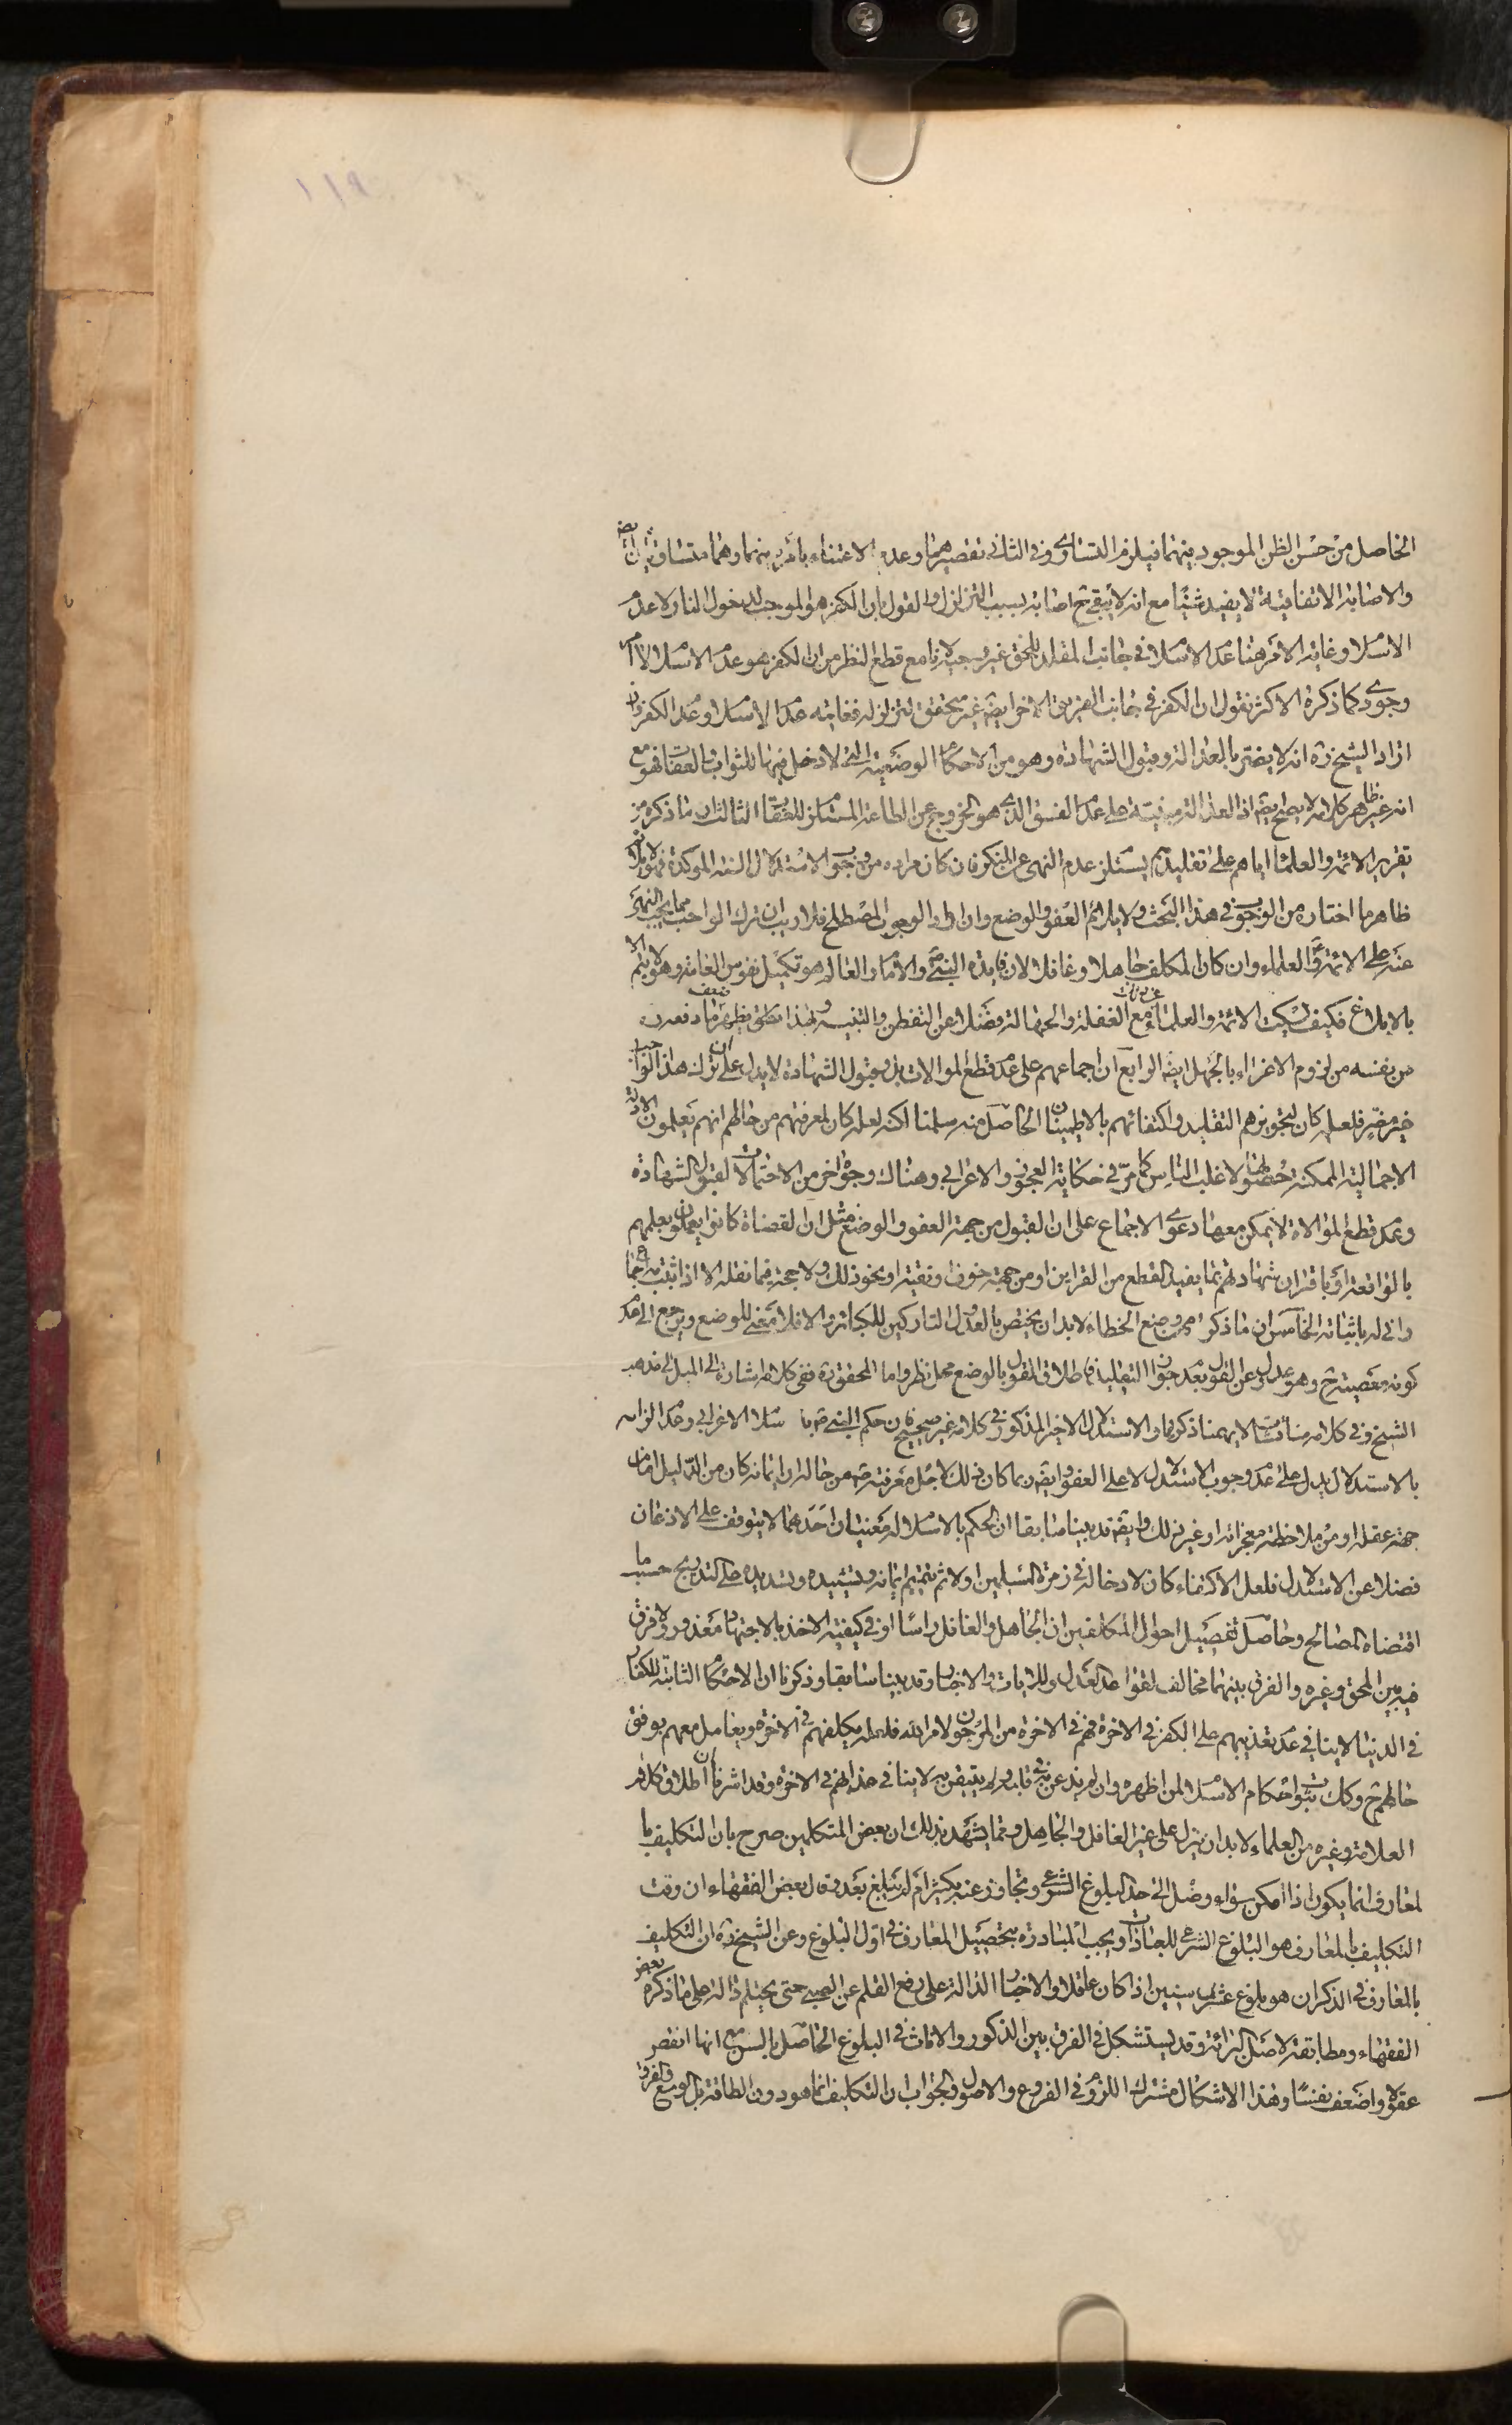 الحاصل من حسن الظن الموجود بينهما فيلزم التساوى وفى الثانى تقصيرهما وعدم الاعتناء بامر دينهما وهما متساويان ايضا
والاصابة الاتفاقية لا يفيد شيئا مع انه لا يبقى ح اصابة بسبب التزلزل والقول بان الكفر هو الموجب لدخول النار لا عدم
الاسلام وغاية الامر هنا عدم الاسلام فى جانب المقلد للحق غير وجيه لانا مع قطع النظر من ان الكفر هو عدم الاسلام لا امر
وجودى كما ذكره الاكثر نقول ان الكفر فى جانب الفريق الاخر ايضا غير متحقق لتزلزله فغايته عدم الاسلام وعدم الكفر وان
اراد الشيخ ره انه لا يضر بالعدالة وقبول الشهادة وهو من الاحكام الوضعية التى لا دخل فيها للثواب والعقاب فهو مع
انه غير ظاهر كلامه لا يصلح ايضا اذ العدالة مبنية على عدم الفسق الذى هو الخروج عن الطاعة المستلزم للعقاب الثالث ان ما ذكره من
تقرير الائمة والعلماء اياهم على تقليدهم يستلزم عدم النهى عن المنكر فان كان مراده من وجوب الاستدلال السنة المؤكدة فهو خلاف
ظاهر ما اختاره من الوجوب فى هذا البحث ولا يلائم العفو والوضع وان اراد الوجوب المصطلح فلا ريب ان ترك الواجب مما يجب النهى
عنه على الائمة والعلماء وان كان المكلف جاهلا وغافلا لان فايدة النبى ص والامام والعالم هو تكميل نفوس العامة وهو لا يتم الا
بالابلاغ فكيف يسكت الائمة والعلماء مع الغفلة والجهالة فضلا عن التفطن والتنبيه ولهذا يظهر ضعف ما دفعه
من نفسه من لزوم الاغراء بالجهل ايضا الرابع ان اجماعهم على عدم قطع الموالات بل وقبول الشهادة لا يدل على ان ترك هذا الواجب
غير مضر فلعله كان لتجويزهم التقليد واكتفائهم بالاطمينان الحاصل منه سلمنا لكنه لعله كان لمعرفتهم من حالهم انهم يعلمون الادلة
الاجمالية الممكنة حصولها لاغلب الناس كما مر فى حكاية العجوز والاعرابى وهناك وجوه اخر من الاحتمالات لقبول الشهادة
وعدم قطع الموالاة لا يمكن معها دعوى الاجماع على ان القبول من جهة العفو والوضع مثل ان القضاة كانوا يعملون بعلمهم
بالواقعة او باقتران شهادتهم بما يفيد القطع من القراين او من جهة خوف وتقية او نحو ذلك ولا حجة فيما نقله الا اذا ثبت به اجماع
وانى له باثباته الخامس ان ما ذكر من وضع الخطاء لا بد ان يختص بالعدول التاركين للكبائر والا فلا معنى للوضع ويرجع الى عدم
كونه معصية ح وهو عدول عن القول بعدم جواز التقليد فاطلاق القول بالوضع محل نظر واما المحقق ره ففى كلامه اشارة الى الميل الى مذهب
الشيخ وفى كلامه مناقشات لا يهمنا ذكرها والاستدلال الاخير المذكور فى كلامه غير صحيح فان حكم النبى ص باسلام الاعرابى وعدم الزامه
بالاستدلال يدل على عدم وجوب الاستدلال لا على العفو وايضا ربما كان ذلك لاجل معرفته ص من حاله ان ايمانه كان من الدليل اما من
جهة عقله او من ملاحظة معجزاته او غير ذلك وايضا قد بينا سابقا ان الحكم بالاسلام له معنيان احدهما لا يتوقف على الاذعان
فضلا عن الاستدلال فلعل الاكتفاء كان لادخاله فى زمرة المسلمين اولا ثم تتميم ايمانه وتشييده وتسديده على التدريج حسب ما
اقتضاه المصالح وحاصل تفصيل احوال المكلفين ان الجاهل والغافل راسا او فى كيفية الاخذ بالاجتهاد معذور ولا فرق
فيه بين المحق وغيره والفرق بينهما مخالف لقواعد العدل وللايات والاخبار وقد بينا سابقا وذكرنا ان الاحكام الثابتة للكفار
فى الدنيا لا ينافى عدم تعذيبهم على الكفر فى الاخرة فهم فى الاخرة من المرجون لامر الله فلعله يكلفهم فى الاخرة ويعامل معهم بوفق
حالهم ح وكك ثبوت احكام الاسلام لمن اظهره وان لم يذعن به فى قلبه ولم يتيقن به لا ينافى عذابهم فى الاخرة وقد اشرنا ان اطلاق كلام
العلامة وغيره من العلماء لا بد ان ينزل على غير الغافل والجاهل ومما يشهد بذلك ان بعض المتكلمين صرح بان التكليف با
لمعارف انما يكون اذا امكن سواء وصل الى حد البلوغ الشرعى وتجاوز عنه بكثير ام لم يبلغ بعد وقال بعض الفقهاء ان وقت
التكليف بالمعارف هو البلوغ الشرعى للعبادات ويجب المبادرة بتحصيل المعارف فى اول البلوغ وعن الشيخ ره ان التكليف
بالمعارف فى الذكران هو بلوغ عشر سنين اذا كان عاقلا والاخبار الدالة على رفع القلم عن الصبى حتى يحتلم دالة على ما ذكره بعض
الفقهاء ومطابقة لاصل البرائة وقد يستشكل فى الفرق بين الذكور والاناث فى البلوغ الحاصل بالسن مع انها انقص
عقلا واضعف نفسا وهذا الاشكال مشترك اللزوم فى الفروع والاصول والجواب ان التكليف انما هو دون الطاقة بل الوسع والفروع